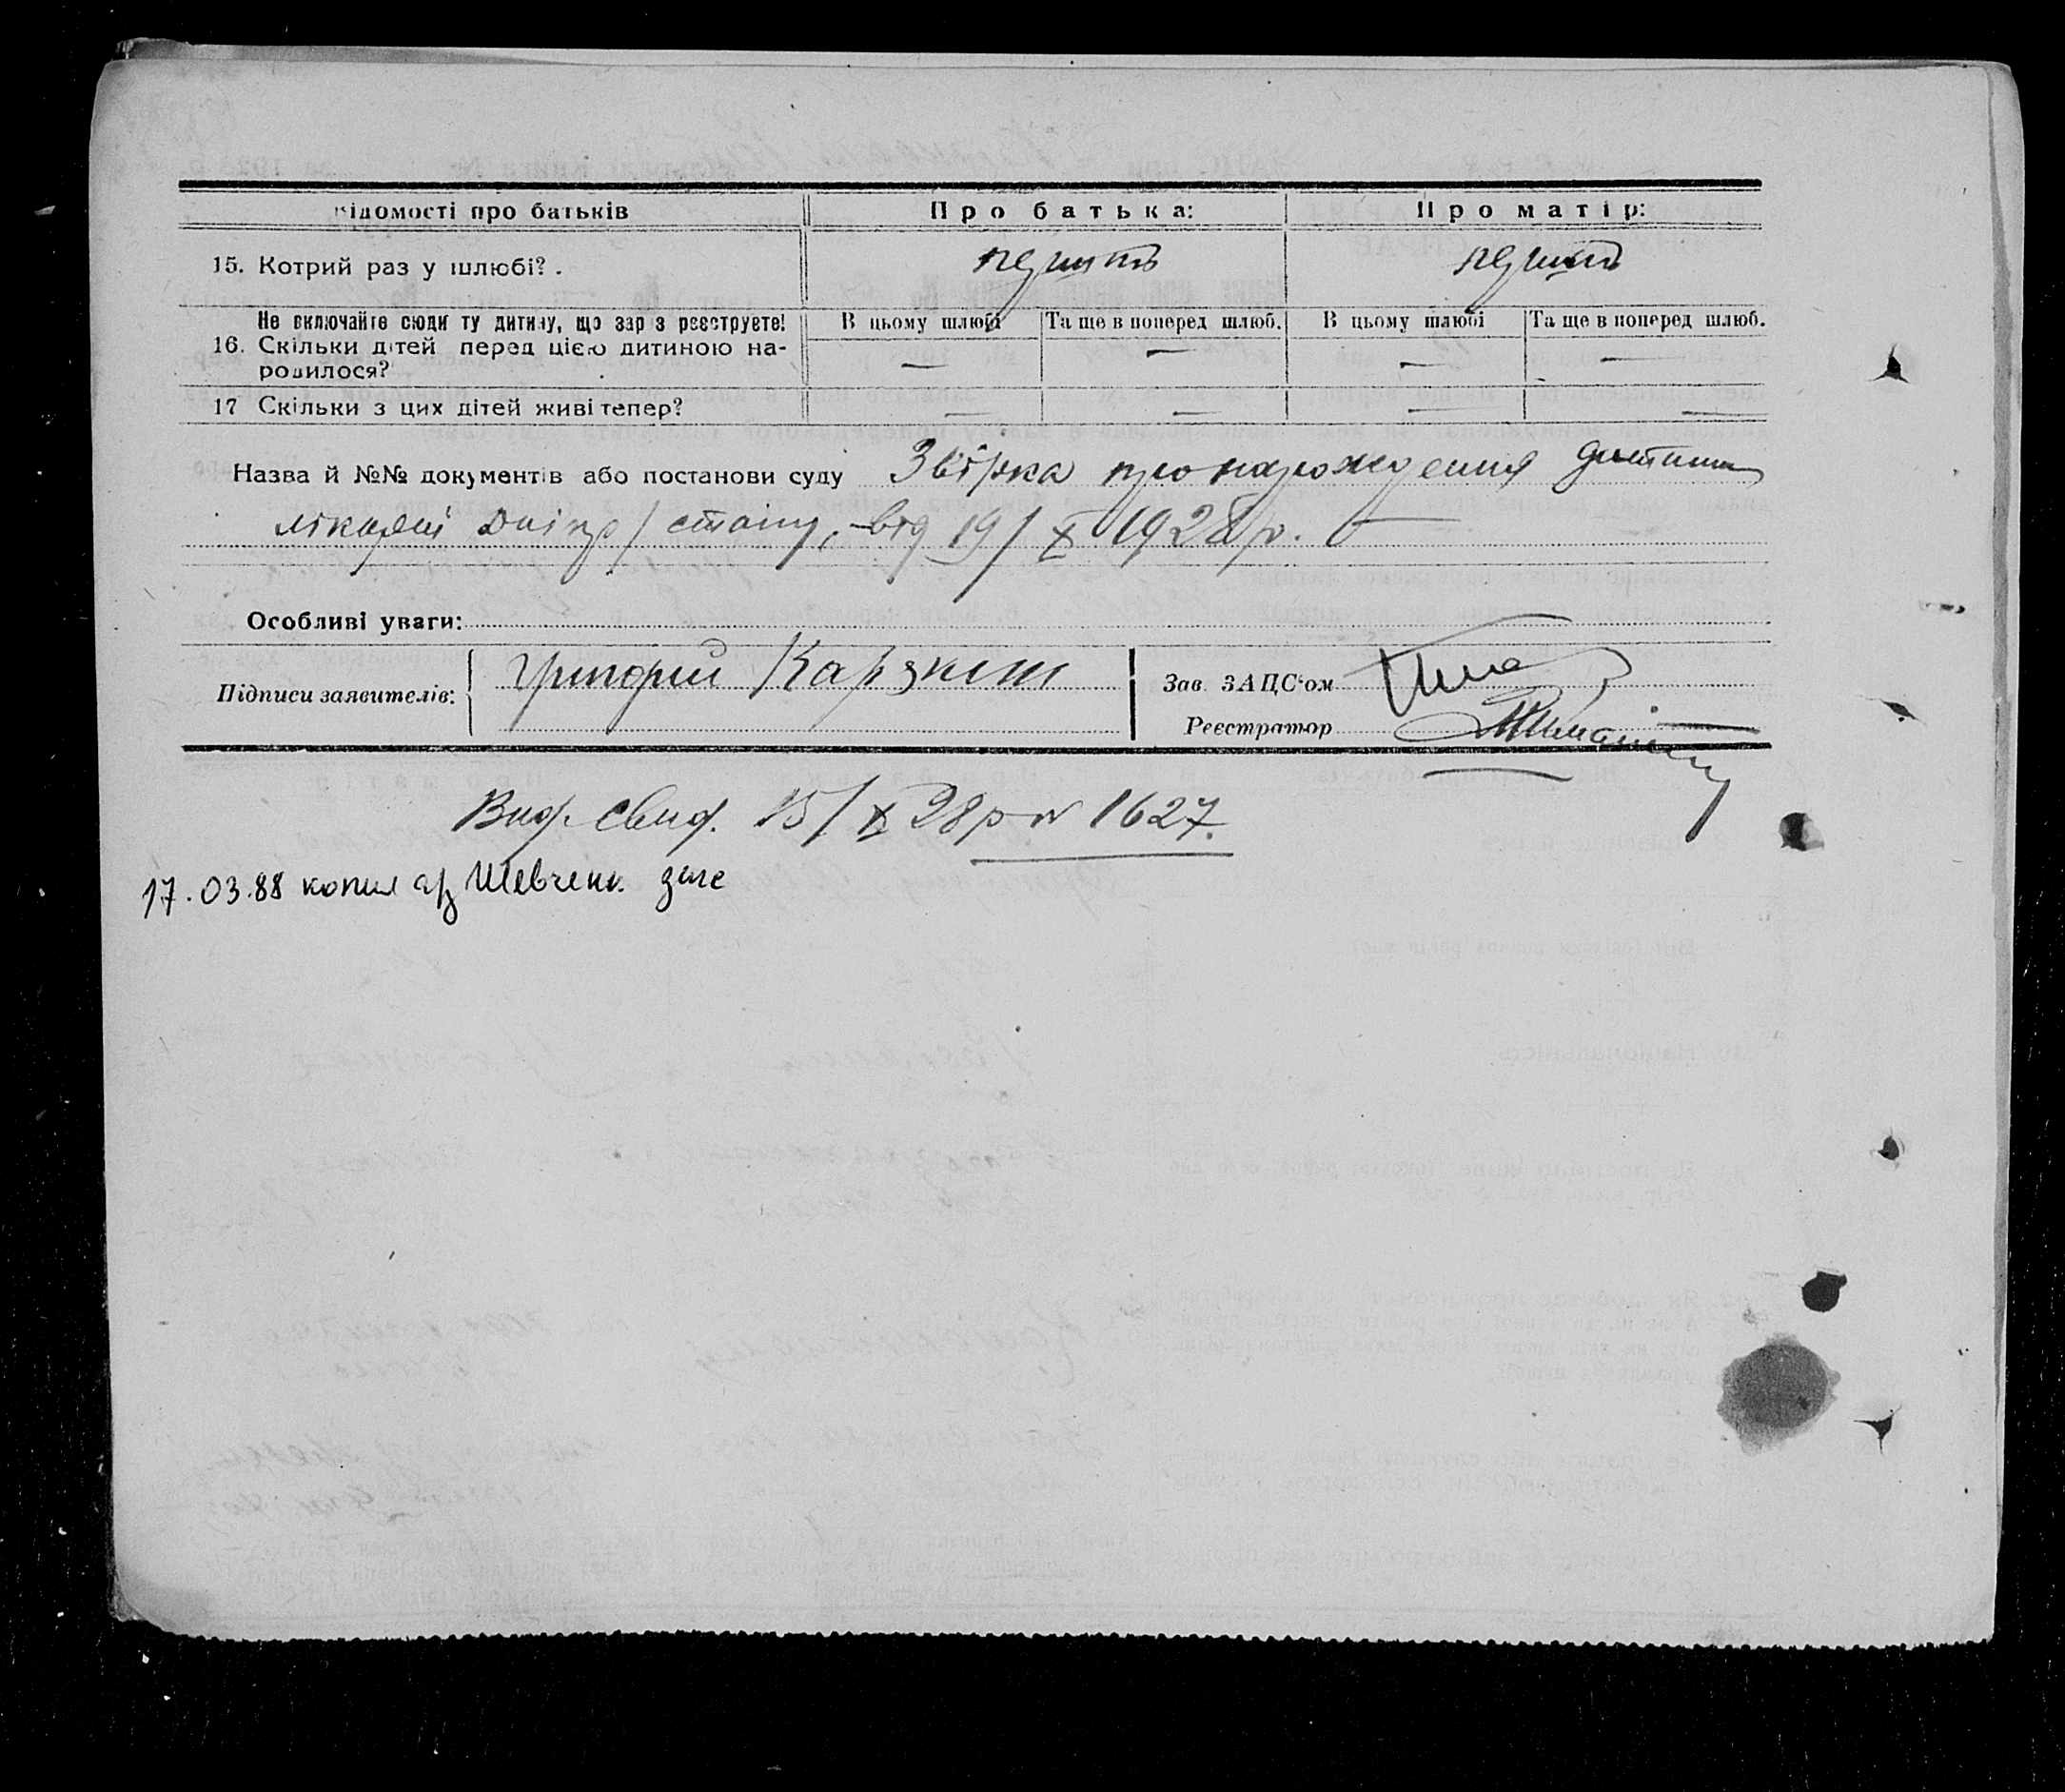 відомості про батьків Про батька: Про матір:
15. Котрий раз у шлюбі?. перший перший
Не включайте сюди ту дитину, що зар з реєструєте! В цьому шлюбі Та ще в поперед шлюб. В цьому шлюбі Та ще в поперед шлюб.
16. Скільки дітей перед цією дитиною на- — — — —
родилося?
17 Скільки з цих дітей живі тепер? — — — —
Назва й №№ документів або постанови суду про народження дитини
лікарні від 19/X 1928 р. —
Особливі уваги:
Підписи заявителів: Григорий Зав. ЗАЦС'ом
Реєстратор
Вид. свид. 15/X 28 р № 1627.
17.03.88 копия Шевченк. загс